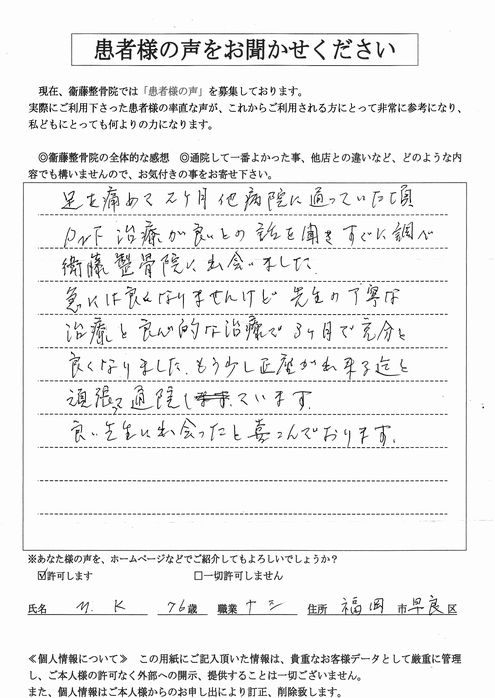 患者様の声をお聞かせください
現在、衞藤整骨院では「患者様の声」を募集しております。
実際にご利用下さった患者様の率直な声が、これからご利用される方にとって非常に参考になり、
私どもにとっても何よりの力になります。
◎衞藤整骨院の全体的な感想　◎通院して一番よかった事、他店との違いなど、どのような内
容でも構いませんので、お気付きの事をお寄せ下さい。
足を痛めて2ヶ月他病院に通っていた頃
PNF治療が良いとの話を聞きすぐに調べ
衛藤整骨院に出会いました
急には良くなりませんけど先生の丁寧な
治療と良心的な治療で3ヶ月で充分と
良くなりました.もう少し正座が出来る迄と
頑張って通院しています.
良い先生に出会ったと喜こんでおります.
※あなた様の声を、ホームページなどでご紹介してもよろしいでしょうか？
☑許可します　□一切許可しません
氏名 M.K 76歳 職業 ナシ 住所 福岡 市早良区
≪個人情報について≫　この用紙にご記入頂いた情報は、貴重なお客様データとして厳重に管理
し、ご本人様の許可なく外部への開示、提供することは一切ございません。
また、個人情報はご本人様からのお申し出により訂正、削除致します。